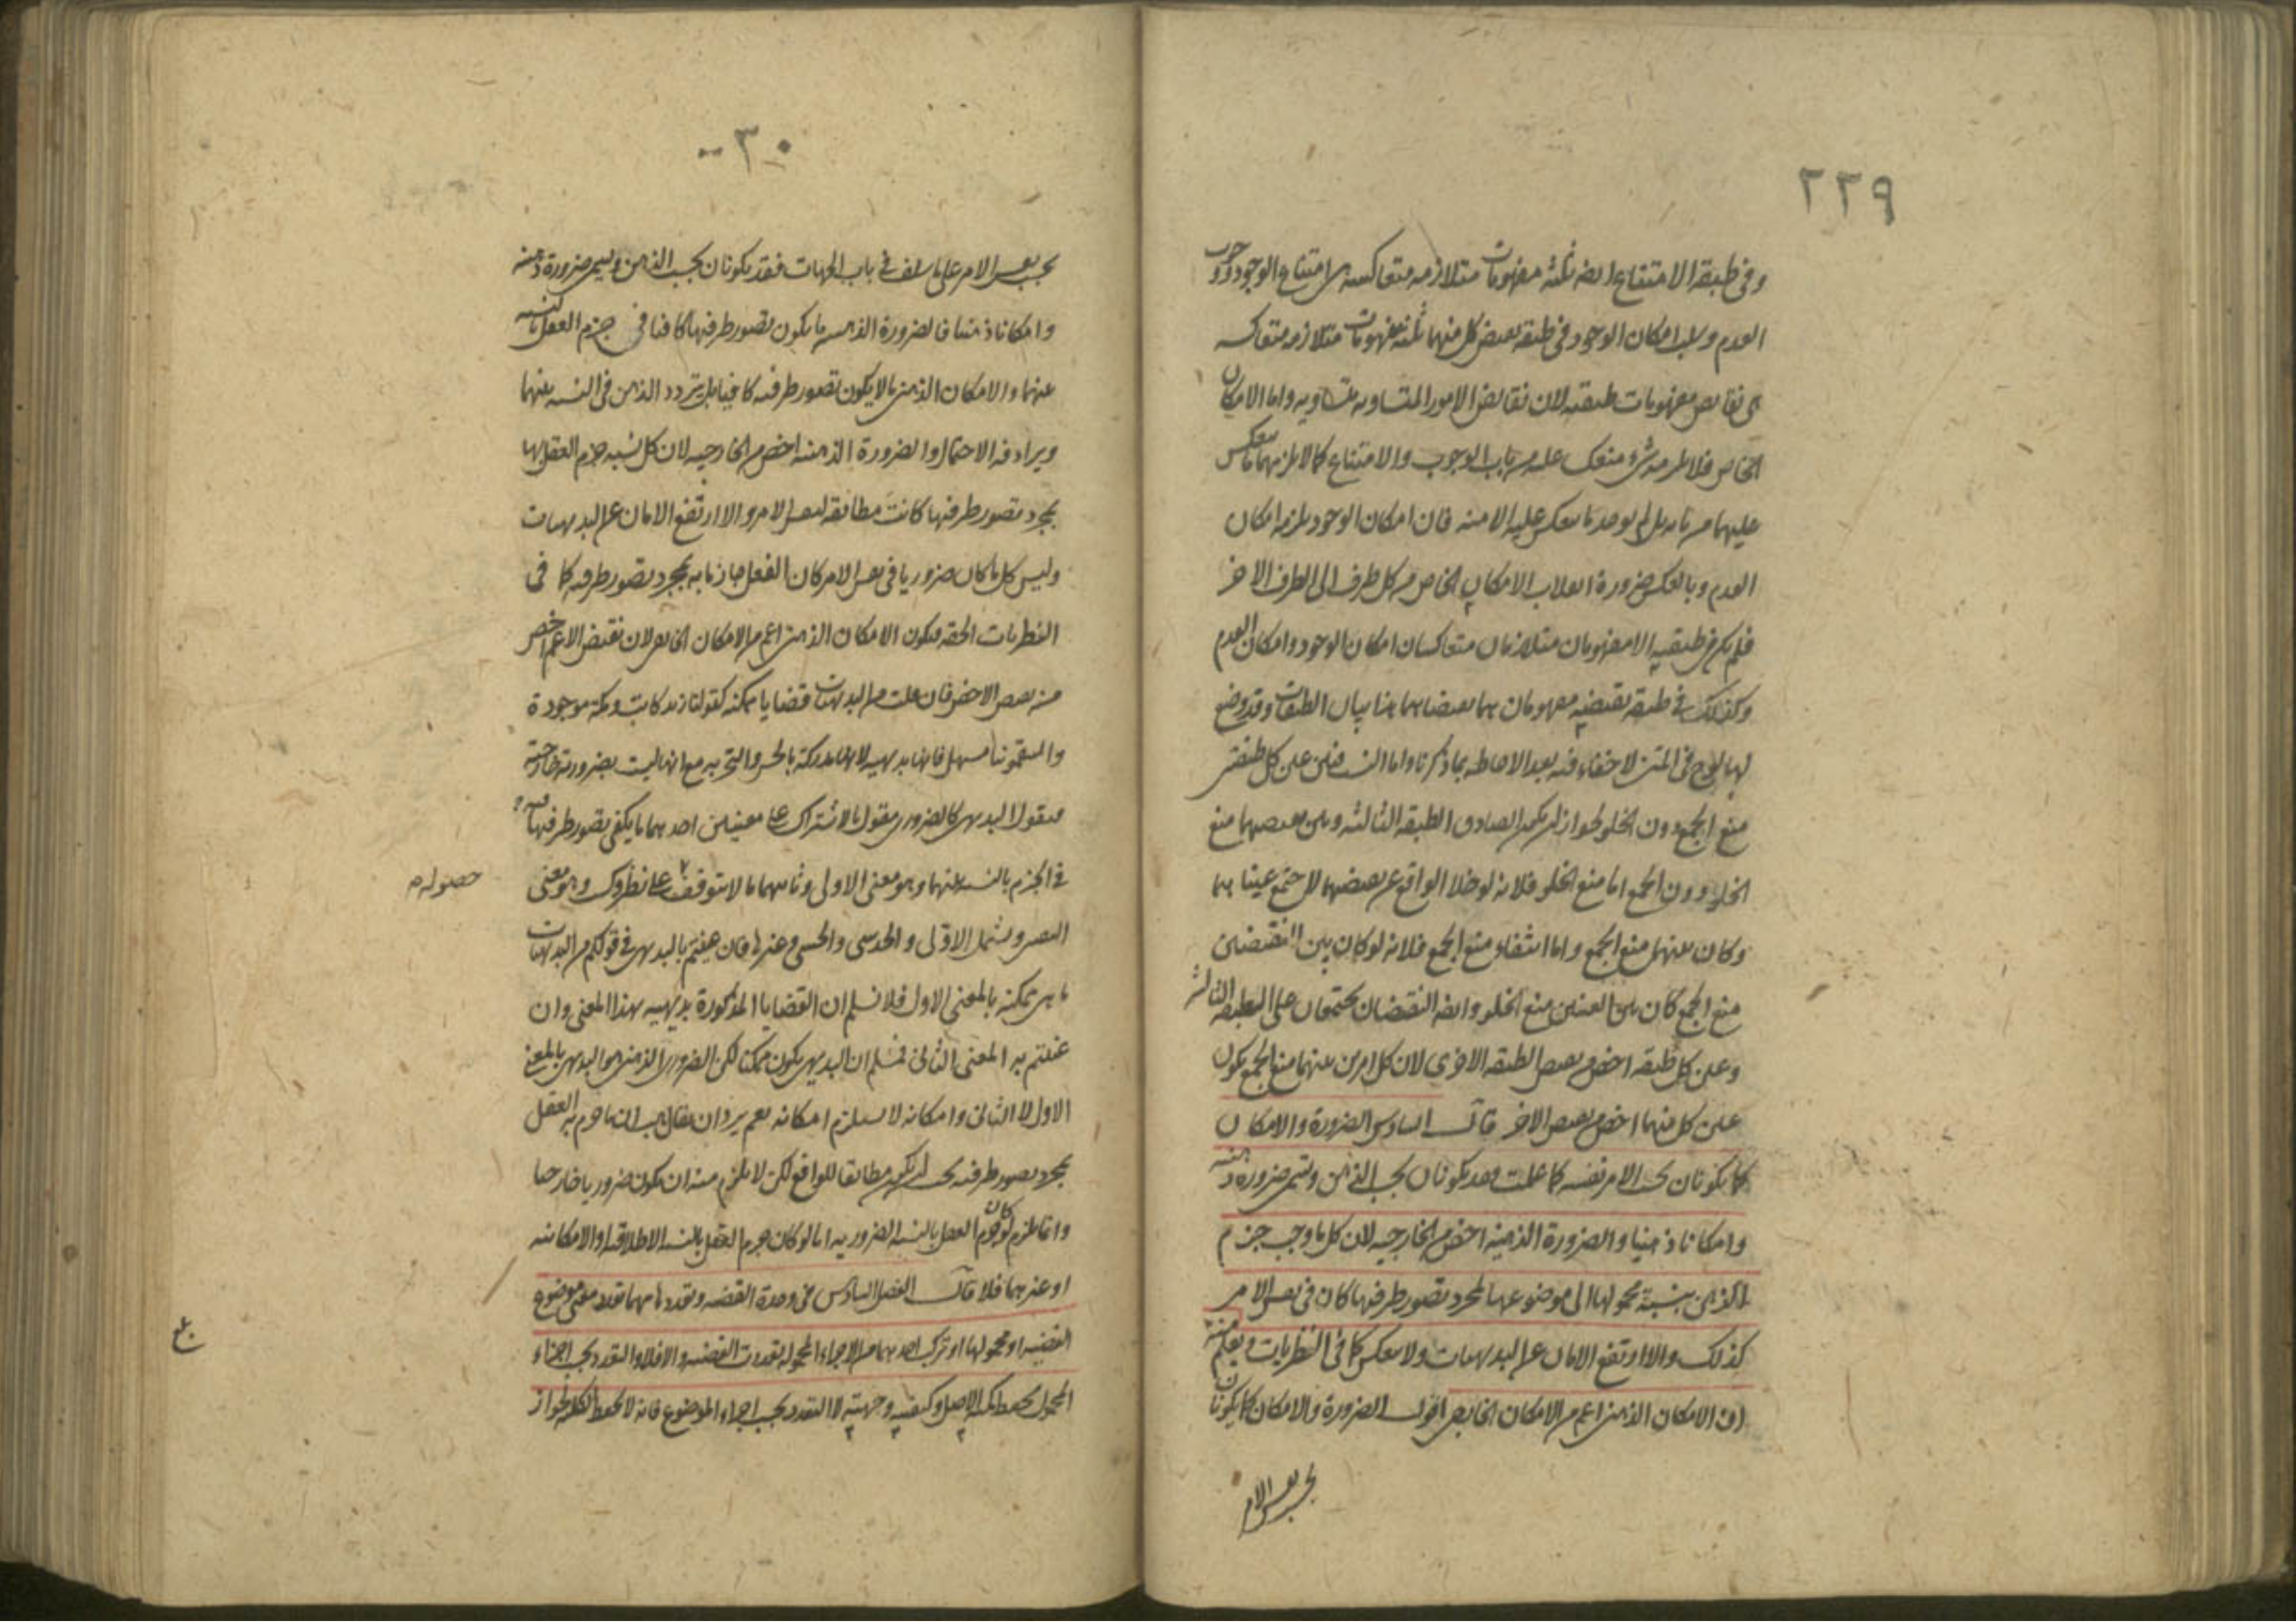 ٢٢٩
وفى طبقة الامتناع ايضا ثلثة مفهومات متلازمة متعاكسة هى امتناع الوجود ووجوب
العدم وسلب امكان الوجود وفى طبقة نقيض كل منهما ثلثة مفهومات متلازمة متعاكسة
هى نقايض مفهومات طبقته لان نقايض الامور المتساوية متساوية واما الامكان
الخاص فلا يلزمه شئ منعكس عليه من باب الوجوب والامتناع كما لا يلزمهما ما ينعكس
عليهما من بابه بل لم يوجد ما ينعكس عليه الا منه فان امكان الوجود يلزمه امكان
العدم وبالعكس ضرورة انقلاب الامكان الخاص من كل طرف الى الطرف الاخر
فلم يكن فى طبقته الا مفهومان متلازمان متعاكسان امكان الوجود وامكان العدم
وكذلك فى طبقة نقيضيه مفهومان هما نقيضاهما هذا بيان الطبقات وقد وضع
لها لوح فى المتن لا خفاء فيه بعد الاحاطة بما ذكرنا واما النسب فبين عين كل طبقتين
منع الجمع دون الخلو لجواز ان يكون الصادق الطبقة الثالثة وبين نقيضيهما منع
الخلو دون الجمع اما منع الخلو فلانه لو خلا الواقع عن نقيضهما لاجتمع عيناهما
وكان بينهما منع الجمع واما انتفاء منع الجمع فلانه لو كان بين النقيضين
منع الجمع كان بين العينين منع الخلو وايضا النقيضان يجتمعان على الطبقة الثالثة
وعين كل طبقة اخص من نقيض الطبقة الاخرى لان كل امرين بينهما منع الجمع يكون
عين كل منهما اخص من نقيض الاخر قال السادس الضرورة والامكان
كما يكونان بحسب الامر نفسه كما علمت وقد يكونان بحسب الذهن ويسمى ضرورة ذهنية
وامكانا ذهنيا والضرورة الذهنية اخص من الخارجية لان كل ما وجب جزم
الذهن بنسبة محمولها الى موضوعها لمجرد تصور طرفيها كان فى نفس الامر
كذلك والا ارتفع الامان عن البديهيات ولا ينعكس كما فى النظريات ويعلم منه
ان الامكان الذهنى اعم من الامكان الخارجى اقول الضرورة والامكان كما يكونان
بحسب نفس الامر
٣٠
بحسب نفس الامر على ما سلف فى باب الجهات فقد يكونان بحسب الذهن ويسمى ضرورة ذهنية
وامكانا ذهنيا فالضرورة الذهنية ما يكون تصور طرفيها كافيا فى جزم العقل بالنسبة
بينهما والامكان الذهنى ما لا يكون تصور طرفيه كافيا بل يتردد الذهن فى النسبة بينهما
ويرادفه الاحتمال والضرورة الذهنية اخص من الخارجية لان كل نسبة جزم العقل بها
بمجرد تصور طرفيها كانت مطابقة لنفس الامر والا ارتفع الامان عن البديهيات
وليس كل ما كان ضروريا فى نفس الامر كان العقل جازما به بمجرد تصور طرفيه كما فى
النظريات الحقة فيكون الامكان الذهنى اعم من الامكان الخارجى لان نقيض الاعم اخص
من نقيض الاخص فان قلت من البديهيات قضايا ممكنة كقولنا زيد كاتب ومكة موجودة
والسقمونيا مسهل فانها بديهية لانها مدركة بالحس والتجربة مع انها ليست بضرورية خارجية
فنقول البديهى كالضرورى مقول بالاشتراك على معنيين احدهما ما يكفى تصور طرفيه
فى الجزم بالنسبة بينهما وهو معنى الاولى وثانيهما ما لا يتوقف على نظر وكسب وهو معنى
حصوله
اليقين ويشمل الاولى والحدسى والحسى وغيرها فان عنيتم بالبديهى فى قولكم من البديهيات
ما هى ممكنة بالمعنى الاول فلا نسلم ان القضايا المذكورة بديهية بهذا المعنى وان
عنيتم به المعنى الثانى فمسلم ان البديهى يكون ممكنا لكن الضرورى الذهنى هو البديهى بالمعنى
الاول لا الثانى وامكانه لا يستلزم امكانه نعم يرد ان يقال هب ان ما جزم به العقل
بمجرد تصور طرفيه يجب ان يكون مطابقا للواقع لكن لا يلزم منه ان يكون ضروريا خارجيا
وانما يلزم لو كان جزم العقل بالنسبة الضرورية اما لو كان جزم العقل بالنسبة الاطلاقية او الامكانية
او غيرهما فلا قال الفصل السادس فى وحدة القضية وتعددها مهما تعدد معنى موضوع
القضية او محمولها او تركب احدهما من الاجزاء المحمولة تعددت القضية والا فلا والتعدد بحسب اجزاء
المحمول يحفظ كمية الاصل وكيفيته وجهته لا التعدد بحسب اجزاء الموضوع فانه لا يحفظ الكلية لجواز
بلغ